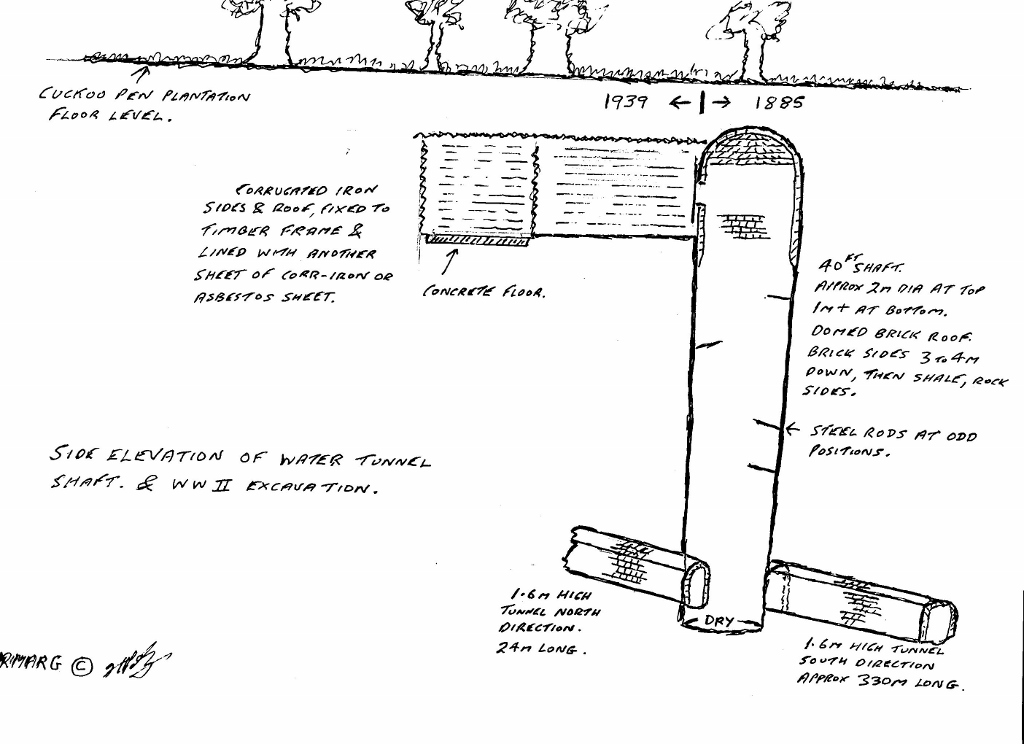 CUCKOO PEN PLANTATION
FLOOR LEVEL.
1939 ← | → 1885
CORRUGATED IRON
SIDES & ROOF, FIXED TO
TIMBER FRAME &
LINED WITH ANOTHER
SHEET OF CORR-IRON OR
ASBESTOS SHEET.
CONCRETE FLOOR.
40FT SHAFT.
APPROX 2M DIA AT TOP
1M+ AT BOTTOM.
DOMED BRICK ROOF.
BRICK SIDES 3 TO 4M
DOWN, THEN SHALE, ROCK
SIDES.
STEEL RODS AT ODD
POSITIONS.
SIDE ELEVATION OF WATER TUNNEL
SHAFT. & WW II EXCAVATION.
1.6M HIGH
TUNNEL NORTH
DIRECTION.
24M LONG.
DRY
1.6M HIGH TUNNEL
SOUTH DIRECTION
APPROX 330M LONG.
RMARG ©